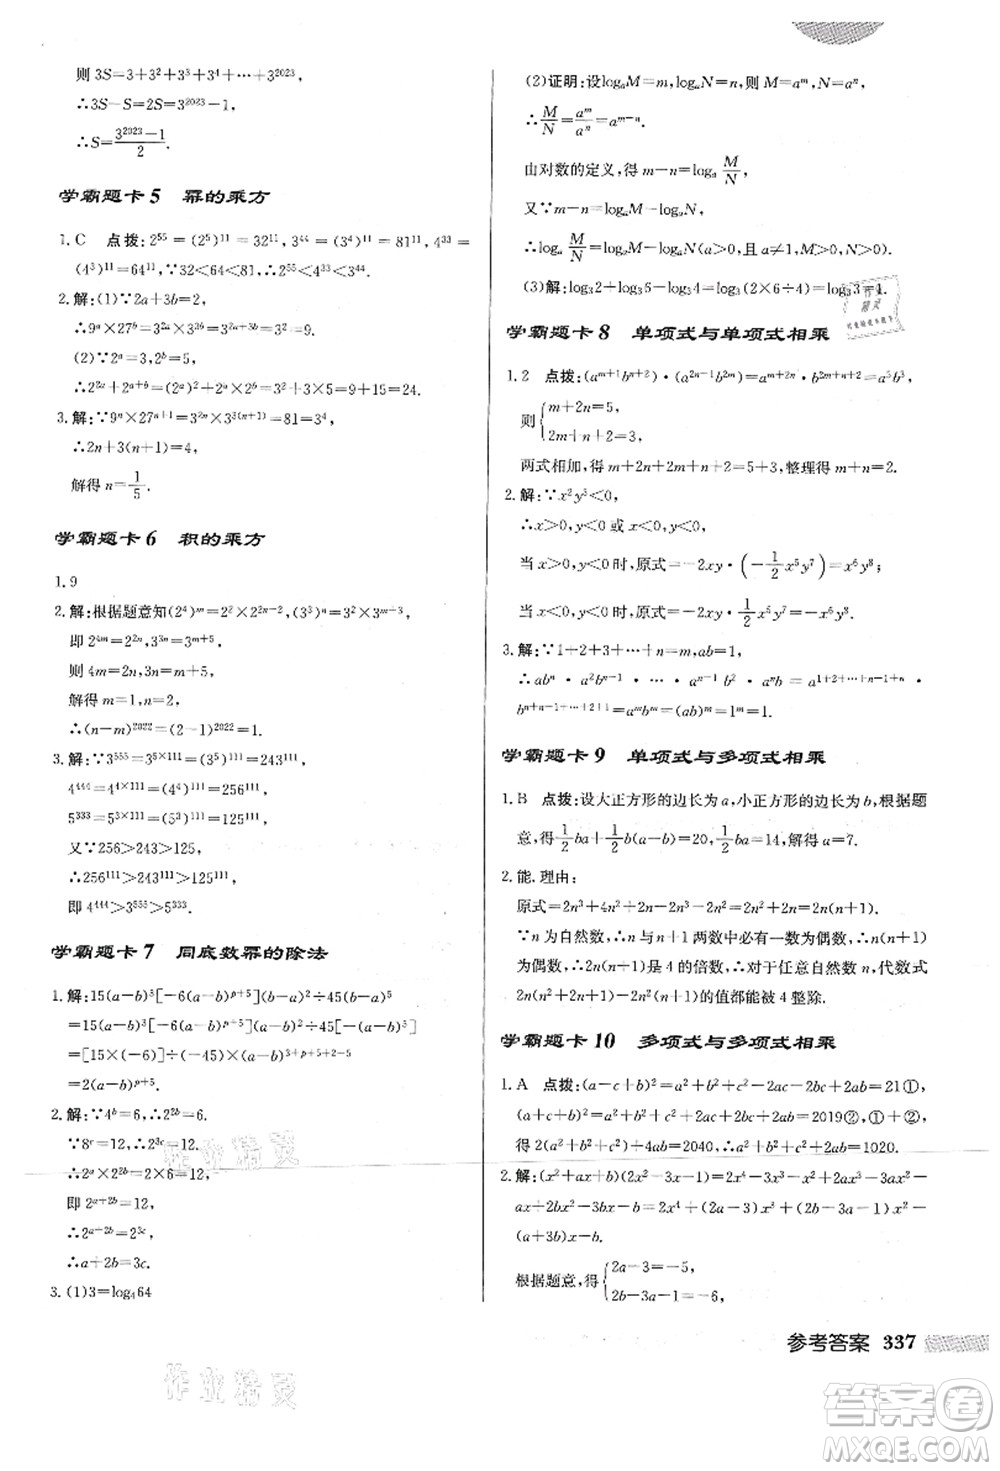 则 3S=3+3²+3³+3⁴+…+3²⁰²³,
∴3S−S=2S=3²⁰²³−1,
∴S=(3²⁰²³−1)/2.
学霸题卡 5 幂的乘方
1. C 点拨:2⁵⁵=(2⁵)¹¹=32¹¹,3⁴⁴=(3⁴)¹¹=81¹¹,4³³=
(4³)¹¹=64¹¹,∵32<64<81,∴2⁵⁵<4³³<3⁴⁴.
2. 解:(1)∵2a+3b=2,
∴9ᵃ×27ᵇ=3²ᵃ×3³ᵇ=3²ᵃ⁺³ᵇ=3²=9;
(2)∵2ᵃ=3,2ᵇ=5,
∴2²ᵃ+2ᵃ⁺ᵇ=(2ᵃ)²+2ᵃ×2ᵇ=3²+3×5=9+15=24.
3. 解:∵9ⁿ×27ⁿ⁺¹=3²ⁿ×3³⁽ⁿ⁺¹⁾=81=3⁴,
∴2n+3(n+1)=4,
解得 n=1/5.
学霸题卡 6 积的乘方
1. 9
2. 解:根据题意知(2⁴)ᵐ=2²×2²ⁿ⁻²,(3³)ᵐ=3ⁿ×3ᵐ⁺³,
即 2⁴ᵐ=2²ⁿ,3³ⁿ=3ᵐ⁺⁵,
则 4m=2n,3n=m+5,
解得 m=1,n=2,
∴(n−m)²⁰²²=(2−1)²⁰²²=1.
3. 解:∵3⁵⁵⁵=3⁵ˣ¹¹¹=(3⁵)¹¹¹=243¹¹¹,
4⁴⁴⁴=4⁴ˣ¹¹¹=(4⁴)¹¹¹=256¹¹¹,
5³³³=5³ˣ¹¹¹=(5³)¹¹¹=125¹¹¹,
又∵256>243>125,
∴256¹¹¹>243¹¹¹>125¹¹¹,
即 4⁴⁴⁴>3⁵⁵⁵>5³³³.
学霸题卡 7 同底数幂的除法
1. 解:15(a−b)³[−6(a−b)ᵖ⁺⁵](b−a)²÷45(b−a)⁵
=15(a−b)³[−6(a−b)ᵖ⁺⁵](a−b)²÷[−45(a−b)⁵]
=[15×(−6)]÷(−45)×(a−b)³⁺ᵖ⁺⁵⁺²⁻⁵
=2(a−b)ᵖ⁺⁵.
2. 解:∵4ᵇ=6,∴2²ᵇ=6.
∵8ᶜ=12,∴2³ᶜ=12.
∴2ᵃ×2²ᵇ=2×6=12,
即 2ᵃ⁺²ᵇ=12,
∴2ᵃ⁺²ᵇ=2³ᶜ,
∴a+2b=3c.
3. (1)3=log₄64
(2)证明:设logₐM=m,logₐN=n,则 M=aᵐ,N=aⁿ,
∴M/N=aᵐ/aⁿ=aᵐ⁻ⁿ,
由对数的定义,得 m−n=logₐ M/N,
又∵m−n=logₐM−logₐN,
∴logₐ M/N=logₐM−logₐN(a>0,且 a≠1,M>0,N>0).
(3)解:log₃2+log₃6−log₃4=log₃(2×6÷4)=log₃3=1.
学霸题卡 8 单项式与单项式相乘
1. 2 点拨:(aᵐ⁺¹bⁿ⁺²)·(a²ⁿ⁻¹b²ᵐ)=aᵐ⁺²ⁿb²ᵐ⁺ⁿ⁺²=a⁵b³,
则{m+2n=5,
2m+n+2=3,
两式相加,得 m+2n+2m+n+2=5+3,整理得 m+n=2.
2. 解:∵x²y³<0,
∴x>0,y<0 或 x<0,y<0.
当 x>0,y<0 时,原式=−2xy·(−1/2x⁵y⁷)=x⁶y⁸;
当 x<0,y<0 时,原式=−2xy·1/2x⁵y⁷=−x⁶y⁸.
3. 解:∵1+2+3+…+n=m,ab=1,
∴abⁿ·a²bⁿ⁻¹·…·aⁿ⁻¹b²·aⁿb=a¹⁺²⁺…⁺ⁿ⁻¹⁺ⁿ·
bⁿ⁺ⁿ⁻¹⁺…⁺²⁺¹=aᵐbᵐ=(ab)ᵐ=1ᵐ=1.
学霸题卡 9 单项式与多项式相乘
1. B 点拨:设大正方形的边长为 a,小正方形的边长为 b,根据题
意,得 1/2ba+1/2b(a−b)+1/2b²=20,1/2ba=14,解得 a=7.
2. 能. 理由:
原式=2n³+4n²−2n²−2n³+2n=2n²+2n=2n(n+1).
∵n 为自然数,∴n 与 n+1 两数中必有一数为偶数,n(n+1)
为偶数,∴2n(n+1)是 4 的倍数,∴对于任意自然数 n,代数式
2n(n²+2n+1)−2n²(n+1)的值都能被 4 整除.
学霸题卡 10 多项式与多项式相乘
1. A 点拨:(a−c+b)²=a²+b²+c²−2ac−2bc+2ab=21①,
(a+c+b)²=a²+b²+c²+2ac+2bc+2ab=2019②,①+②,
得 2(a²+b²+c²)+4ab=2040,∴a²+b²+c²+2ab=1020.
2. 解:(x²+ax+b)(2x²−3x−1)=2x⁴−3x³−x²+2ax³−3ax²−
ax+2bx²−3bx−b=2x⁴+(2a−3)x³+(2b−3a−1)x²+
(−a−3b)x−b.
根据题意,得{2a−3=−5,
2b−3a−1=−6,
参考答案 337
作业精灵
答案圈
MXQE.COM